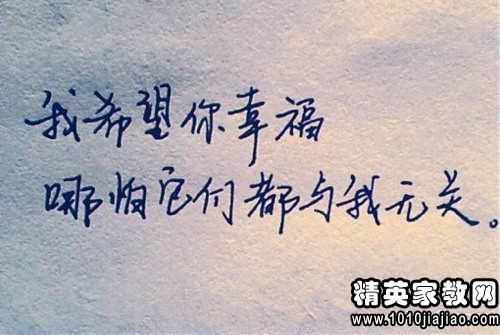 我希望你幸福
哪怕它们都与我无关。
精英家教网
www.1010jiajiao.com